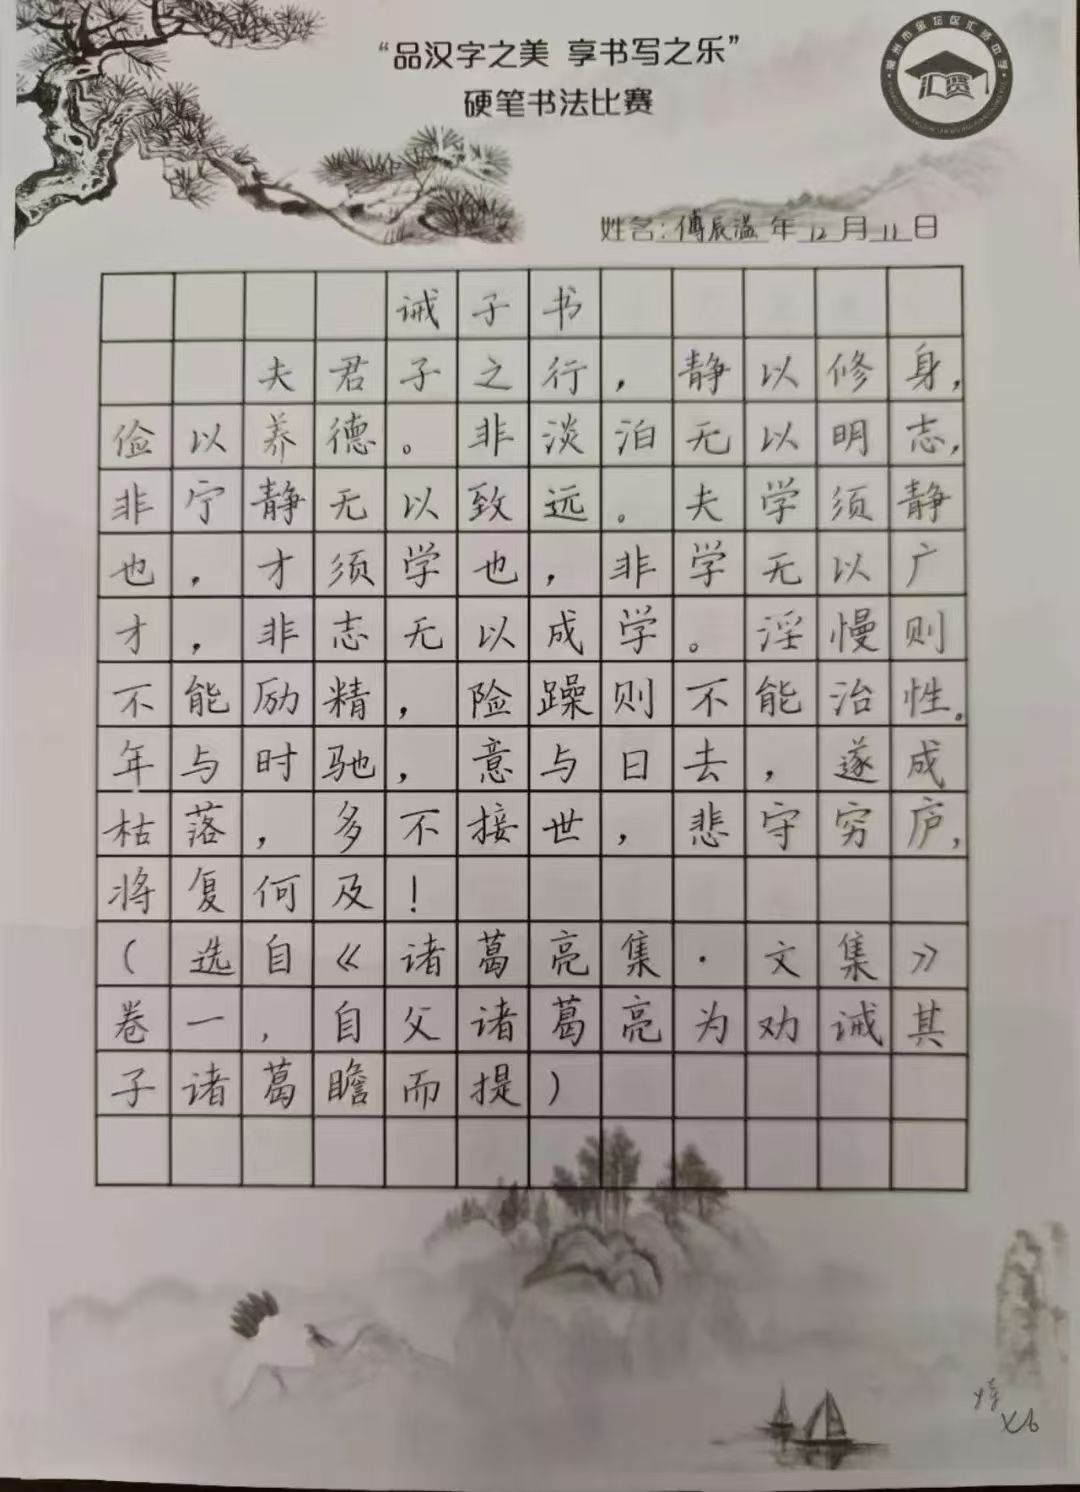 “品汉字之美 享书写之乐”
硬笔书法比赛
汇贤
姓名：傅辰溢 年 12 月 11 日
诫子书
夫君子之行，静以修身，
俭以养德。非淡泊无以明志，
非宁静无以致远。夫学须静
也，才须学也，非学无以广
才，非志无以成学。淫慢则
不能励精，险躁则不能治性。
年与时驰，意与日去，遂成
枯落，多不接世，悲守穷庐，
将复何及！
（选自《诸葛亮集·文集》
卷一，自父诸葛亮为劝诫其
子诸葛瞻而提）